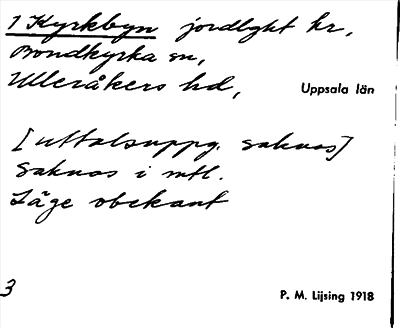 1 Kyrkbyn jordlght hr,
Bondkyrka sn,
Ulleråkers hd,
Uppsala län
[uttalsuppg. saknas]
Saknas i mtl.
Läge obekant
3
P. M. Lijsing 1918